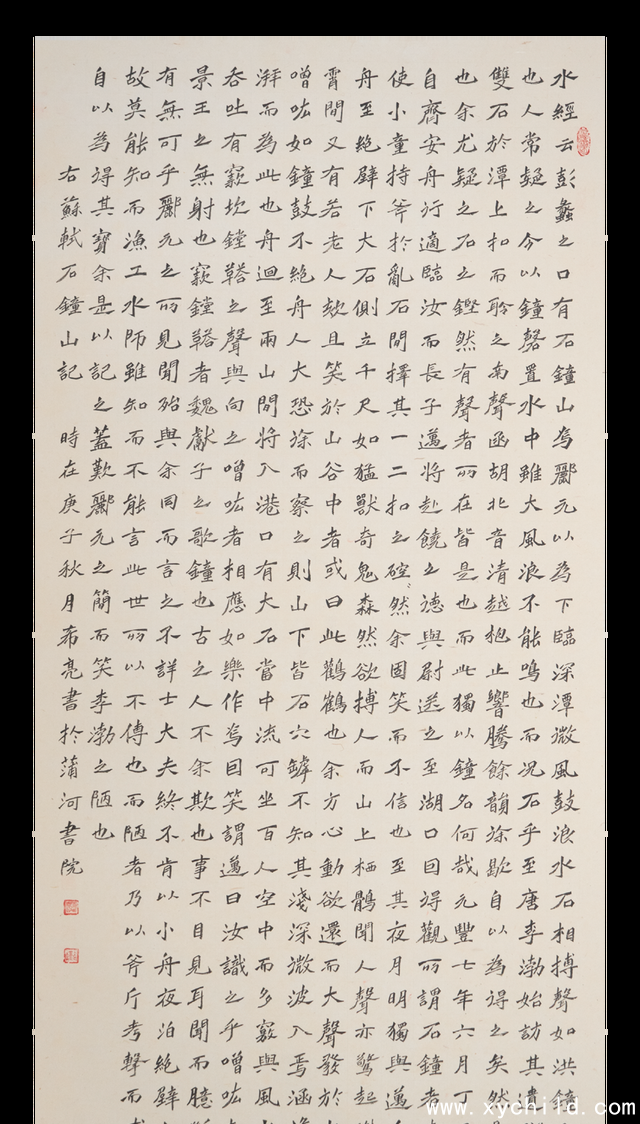 水經云彭蠡之口有石鐘山焉酈元以為下臨深潭微風鼓浪水石相搏聲如洪鐘
也人常疑之今以鐘磬置水中雖大風浪不能鳴也而況石乎至唐李渤始訪其遺
雙石於潭上扣而聆之南聲函胡北音清越枹止響騰餘韻徐歇自以為得之矣然
也余尤疑之石之鏗然有聲者所在皆是也而此獨以鐘名何哉元豐七年六月丁
自齊安舟行適臨汝而長子邁將赴饒之德與尉送之至湖口因得觀所謂石鐘者
使小童持斧於亂石間擇其一二扣之硿然余固笑而不信也至其夜月明獨與邁
舟至絕壁下大石側立千尺如猛獸奇鬼森然欲搏人而山上栖鶻聞人聲亦驚起
霄間又有若老人欬且笑於山谷中者或曰此鸛鶴也余方心動欲還而大聲發於
噌吰如鐘鼓不絕舟人大恐徐而察之則山下皆石穴罅不知其淺深微波入焉涵
湃而為此也舟迴至兩山間將入港口有大石當中流可坐百人空中而多竅與風
吞吐有窾坎鏜鞳之聲與向之噌吰者相應如樂作焉因笑謂邁曰汝識之乎噌吰
景王之無射也窾鏜鞳者魏獻子之歌鐘也古之人不余欺也事不目見耳聞而臆
有無可乎酈元之所見聞殆與余同而言之不詳士大夫終不肯以小舟夜泊絕壁
故莫能知而漁工水師雖知而不能言此世所以不傳也而陋者乃以斧斤考擊而
自以為得其實余是以記之蓋歎酈元之簡而笑李渤之陋也
右蘇軾石鐘山記 時在庚子秋月希亮書於蒲河書院
www.xychild.com